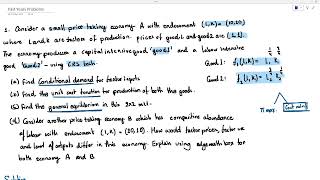 Past Years Problems
1. Consider a small price taking economy A with endowment (L,K) = (20,20)
where L and K are factors of production. prices of goods 1 and goods 2 are (1,1).
The economy produce a capital intensive good 'good 1' and a labour intensive
good 'good 2' using CRS tech.
Good 1: f₁(L,K) = L K
Good 2: f₂(L,K) = L K
(a) Find conditional demand for factor inputs
(b) Find the unit cost function for production of both the good.
(c) Find the general equilibrium in this 2x2 model.
π max. Cost mini
(d) Consider another price taking economy B which has comparative abundance
of labour with endowment (L,K) = (20,10). How would factor prices, factor use
and level of outputs differ in this economy. Explain using edgeworth box for
both economy A and B.